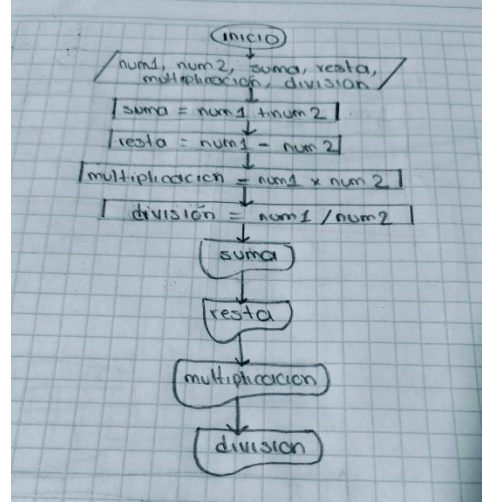 inicio
num1, num2, suma, resta,
multiplicación, división
suma = num1 + num2
resta = num1 - num2
multiplicacion = num1 x num2
división = num1 / num2
suma
resta
multiplicacion
division